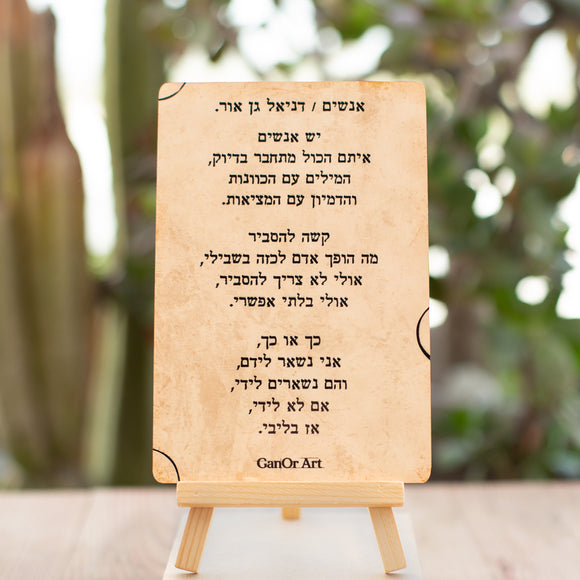 אנשים / דניאל גן אור.
יש אנשים
איתם הכול מתחבר בדיוק,
המילים עם הכוונות
והדמיון עם המציאות.
קשה להסביר
מה הופך אדם לכזה בשבילי,
אולי לא צריך להסביר,
אולי בלתי אפשרי.
כך או כך,
אני נשאר לידם,
והם נשארים לידי,
אם לא לידי,
אז בליבי.
GanOr Art